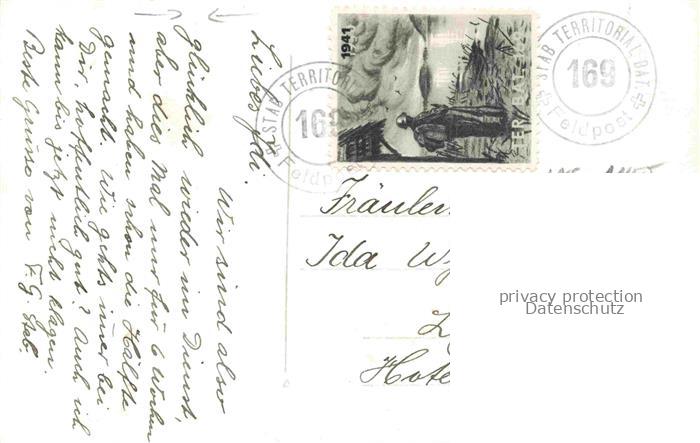 Liebes Idi.
Wir sind also
glücklich wieder im Dienst,
aber dies Mal nur für 6 Wochen
und haben schon die Hälfte
gemacht. Wie gehts im̄er bei
Dir, hoffentlich gut? Auch ich
kann bis jetzt nicht klagen.
Beste Grüsse von F. G. Stab.
STAB TERRITORIAL
169
Feldpost
1941
STAB TERRITORIAL-BAT.
169
Feldpost
Fräulein
Ida
Hote
privacy protection
Datenschutz